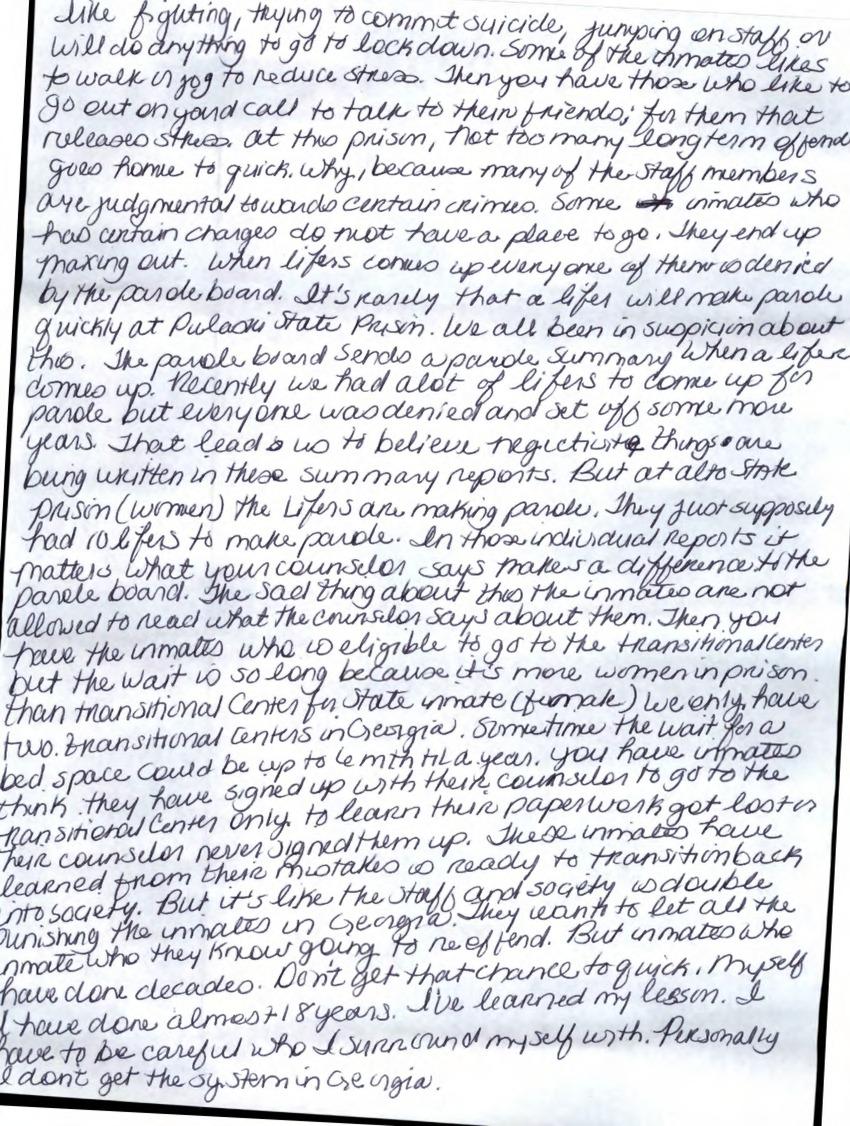 like fighting, trying to commit suicide, jumping on staff or
will do anything to go to lockdown. Some of the inmates likes
to walk or jog to reduce stress. Then you have those who like to
go out on yard call to talk to their friends; for them that
releases stress. at this prison, not too many long term offend
goes home to quick. why, because many of the staff members
are judgmental towards certain crimes. Some inmates who
has certain charges do not have a place to go. They end up
maxing out. When lifers comes up everyone of them is denied
by the parole board. It's rarely that a lifer will make parole
quickly at Pulaski State Prison. We all been in suspicion about
this. The parole board sends a parole summary when a lifer
comes up. Recently we had alot of lifers to come up for
parole but everyone was denied and set off some more
years. That leads us to believe things are
being written in these summary reports. But at alto State
prison (women) the Lifers are making parole. They just supposely
had 10 lifers to make parole. In those individual reports it
matters what your counselor says makes a difference to the
parole board. The sad thing about this the inmates are not
allowed to read what the counselor says about them. Then you
have the inmates who is eligible to go to the transitional center
but the wait is so long because it's more women in prison.
than transitional Center for State inmate (female) we only have
two. transitional centers in Georgia. Sometime the wait for a
bed space could be up to 6 mth til a year. you have inmates
think they have signed up with their counselor to go to the
transitional Center only to learn their paperwork got lost or
their counselor never signed them up. These inmates have
learned from their mistakes is ready to transition back
into society. But it's like the staff and society is double
punishing the inmates in Georgia. They want to let all the
inmate who they know going to reoffend. But inmates who
have done decades. Don't get that chance to quick. Myself
I have done almost 18 years. I've learned my lesson. I
have to be careful who I surround myself with. Personally
I don't get the system in Georgia.